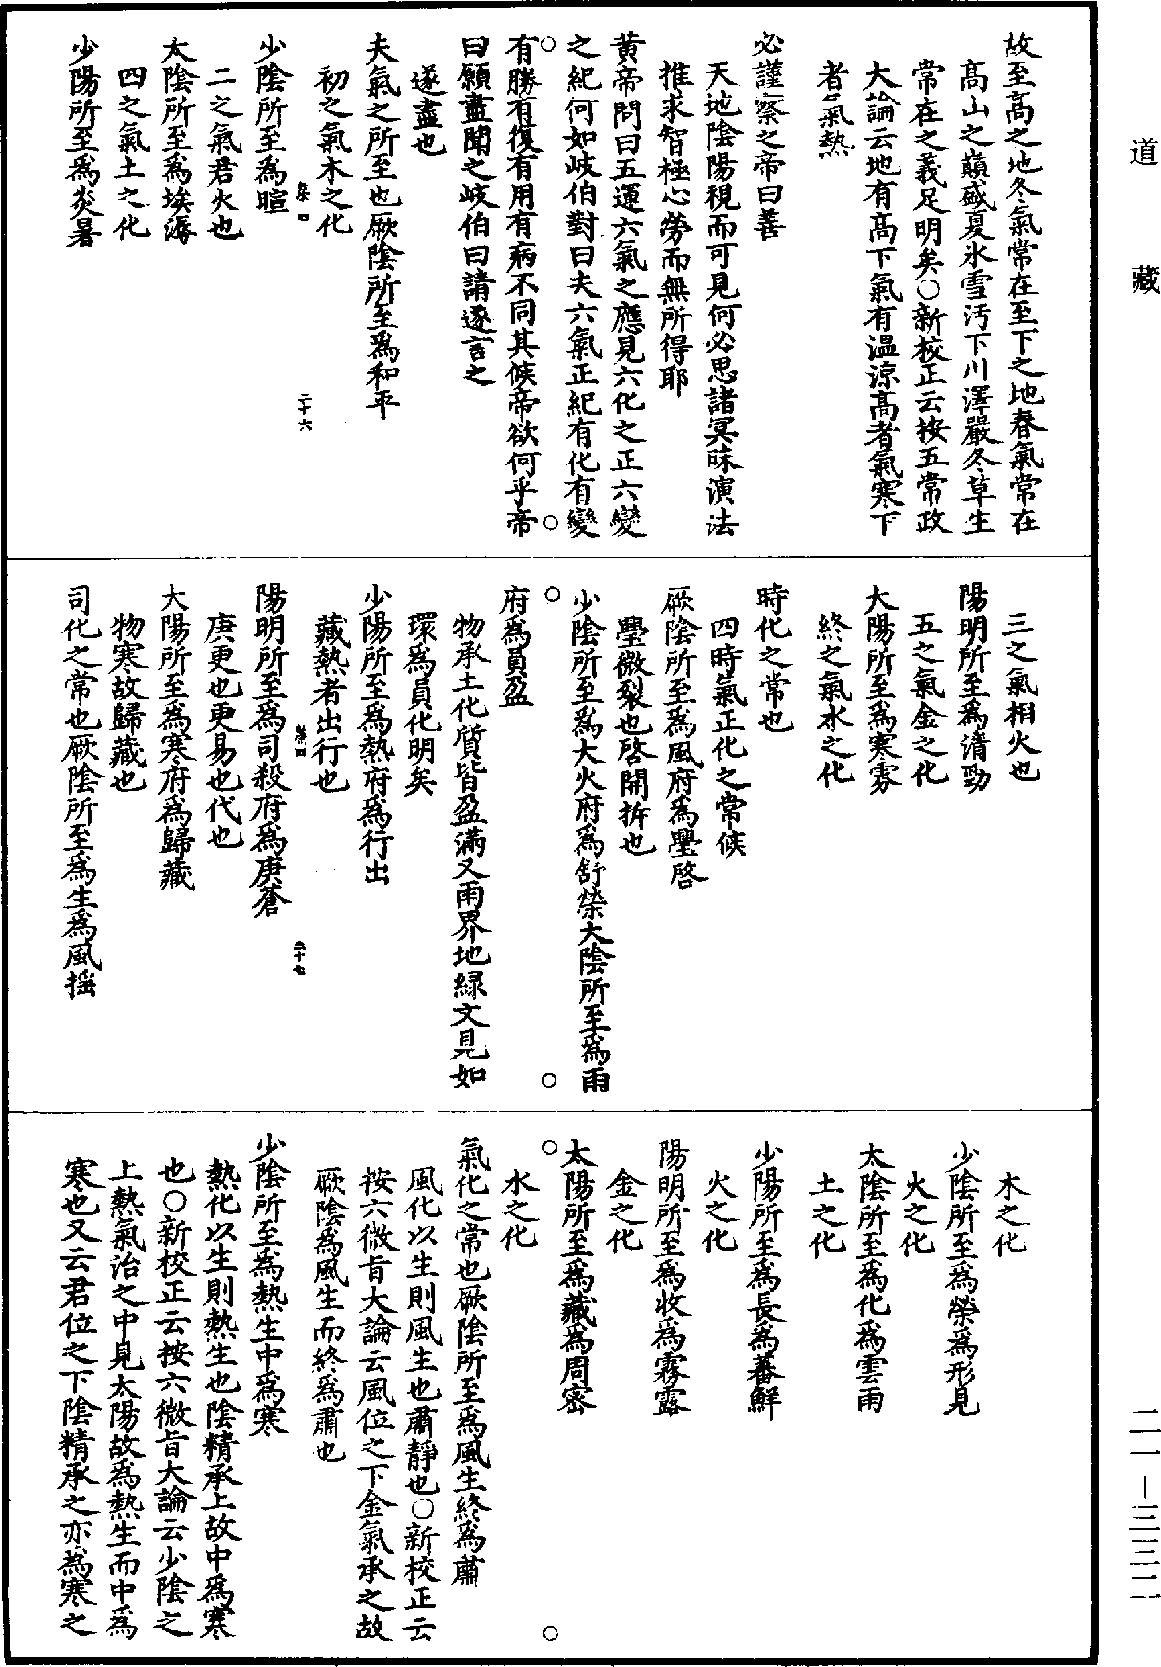 道藏
故至高之地冬氣常在至下之地春氣常在
高山之巔盛夏氷雪汚下川澤嚴冬草生
常在之義足明矣○新校正云按五常政
大論云地有高下氣有温涼高者氣寒下
者氣熱
必謹察之帝曰善
天地陰陽視而可見何必思諸冥昧演法
推求智極心勞而無所得耶
黃帝問曰五運六氣之應見六化之正六變
之紀何如岐伯對曰夫六氣正紀有化有變
○ ○
有勝有復有用有病不同其候帝欲何乎帝
曰願盡聞之岐伯曰請遂言之
遂盡也
夫氣之所至也厥陰所至爲和平
初之氣木之化
二十六
少陰所至爲暄
二之氣君火也
太陰所至爲埃溽
四之氣土之化
少陽所至爲炎暑
三之氣相火也
陽明所至爲清勁
五之氣金之化
大陽所至爲寒雰
終之氣水之化
時化之常也
四時氣正化之常候
厥陰所至爲風府爲璺啓
璺微裂也啓開拆也
少陰所至爲大火府爲舒榮大陰所至爲雨
○ ○
府爲員盈
物承土化質皆盈滿又雨界地緑文見如
環爲員化明矣
少陽所至爲熱府爲行出
藏熱者出行也
二十七
陽明所至爲司殺府爲庚蒼
庚更也更易也代也
大陽所至爲寒府爲歸藏
物寒故歸藏也
司化之常也厥陰所至爲生爲風揺
木之化
少陰所至爲榮爲形見
火之化
太陰所至爲化爲雲雨
土之化
少陽所至爲長爲蕃鮮
火之化
陽明所至爲收爲霧露
金之化
太陽所至爲藏爲周密
○ ○
水之化
氣化之常也厥陰所至爲風生終爲肅
風化以生則風生也肅靜也○新校正云
按六微旨大論云風位之下金氣承之故
厥陰爲風生而終爲肅也
少陰所至爲熱生中爲寒
熱化以生則熱生也陰精承上故中爲寒
也○新校正云按六微旨大論云少陰之
上熱氣治之中見太陽故爲熱生而中爲
寒也又云君位之下陰精承之亦爲寒之
二一—三三二